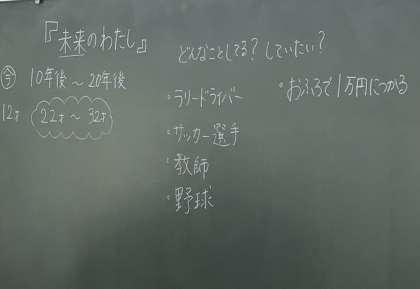 『未来のわたし』
今 10年後～20年後
12才 22才～32才
どんなことしてる？していたい？
・ラリードライバー
・サッカー選手
・教師
・野球
・おふろで1万円につかる